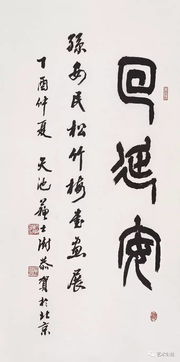 回延安
孫安民松竹梅書画展
丁酉仲夏 天池 蘇士澍恭賀於北京